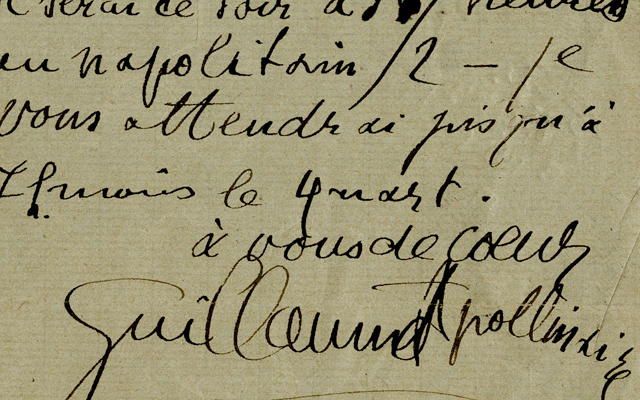 serai ce soir à 5 heures
au napolitain 1/2 – Je
vous attendrai jusqu'à
7h moins le quart.
à vous de cœur
Guillaume Apollinaire